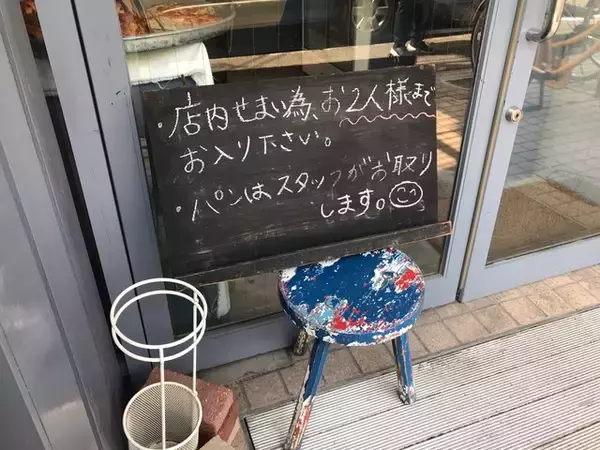 ・店内せまい為、お2人様まで
お入り下さい。
・パンはスタッフがお取り
します。